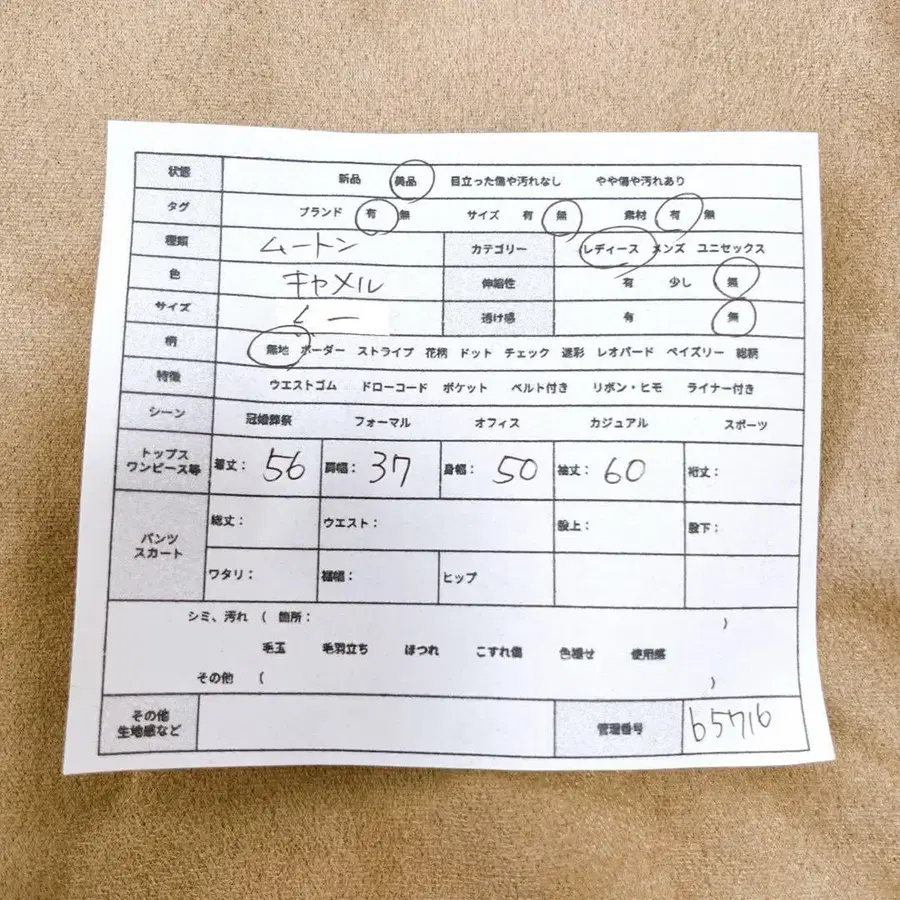 状態 新品 美品 目立った傷や汚れなし やや傷や汚れあり
タグ ブランド 有 無 サイズ 有 無 素材 有 無
種類 ムートン カテゴリー レディース メンズ ユニセックス
色 キャメル 伸縮性 有 少し 無
サイズ 透け感 有 無
柄 無地 ボーダー ストライプ 花柄 ドット チェック 迷彩 レオパード ペイズリー 総柄
特徴 ウエストゴム ドローコード ポケット ベルト付き リボン・ヒモ ライナー付き
シーン 冠婚葬祭 フォーマル オフィス カジュアル スポーツ
トップス
ワンピース等 着丈: 56 肩幅: 37 身幅: 50 袖丈: 60 裄丈:
パンツ
スカート 総丈: ウエスト: 股上: 股下:
ワタリ: 裾幅: ヒップ
シミ、汚れ ( 箇所: )
毛玉 毛羽立ち ほつれ こすれ傷 色褪せ 使用感
その他 ( )
その他
生地感など 管理番号 b5716